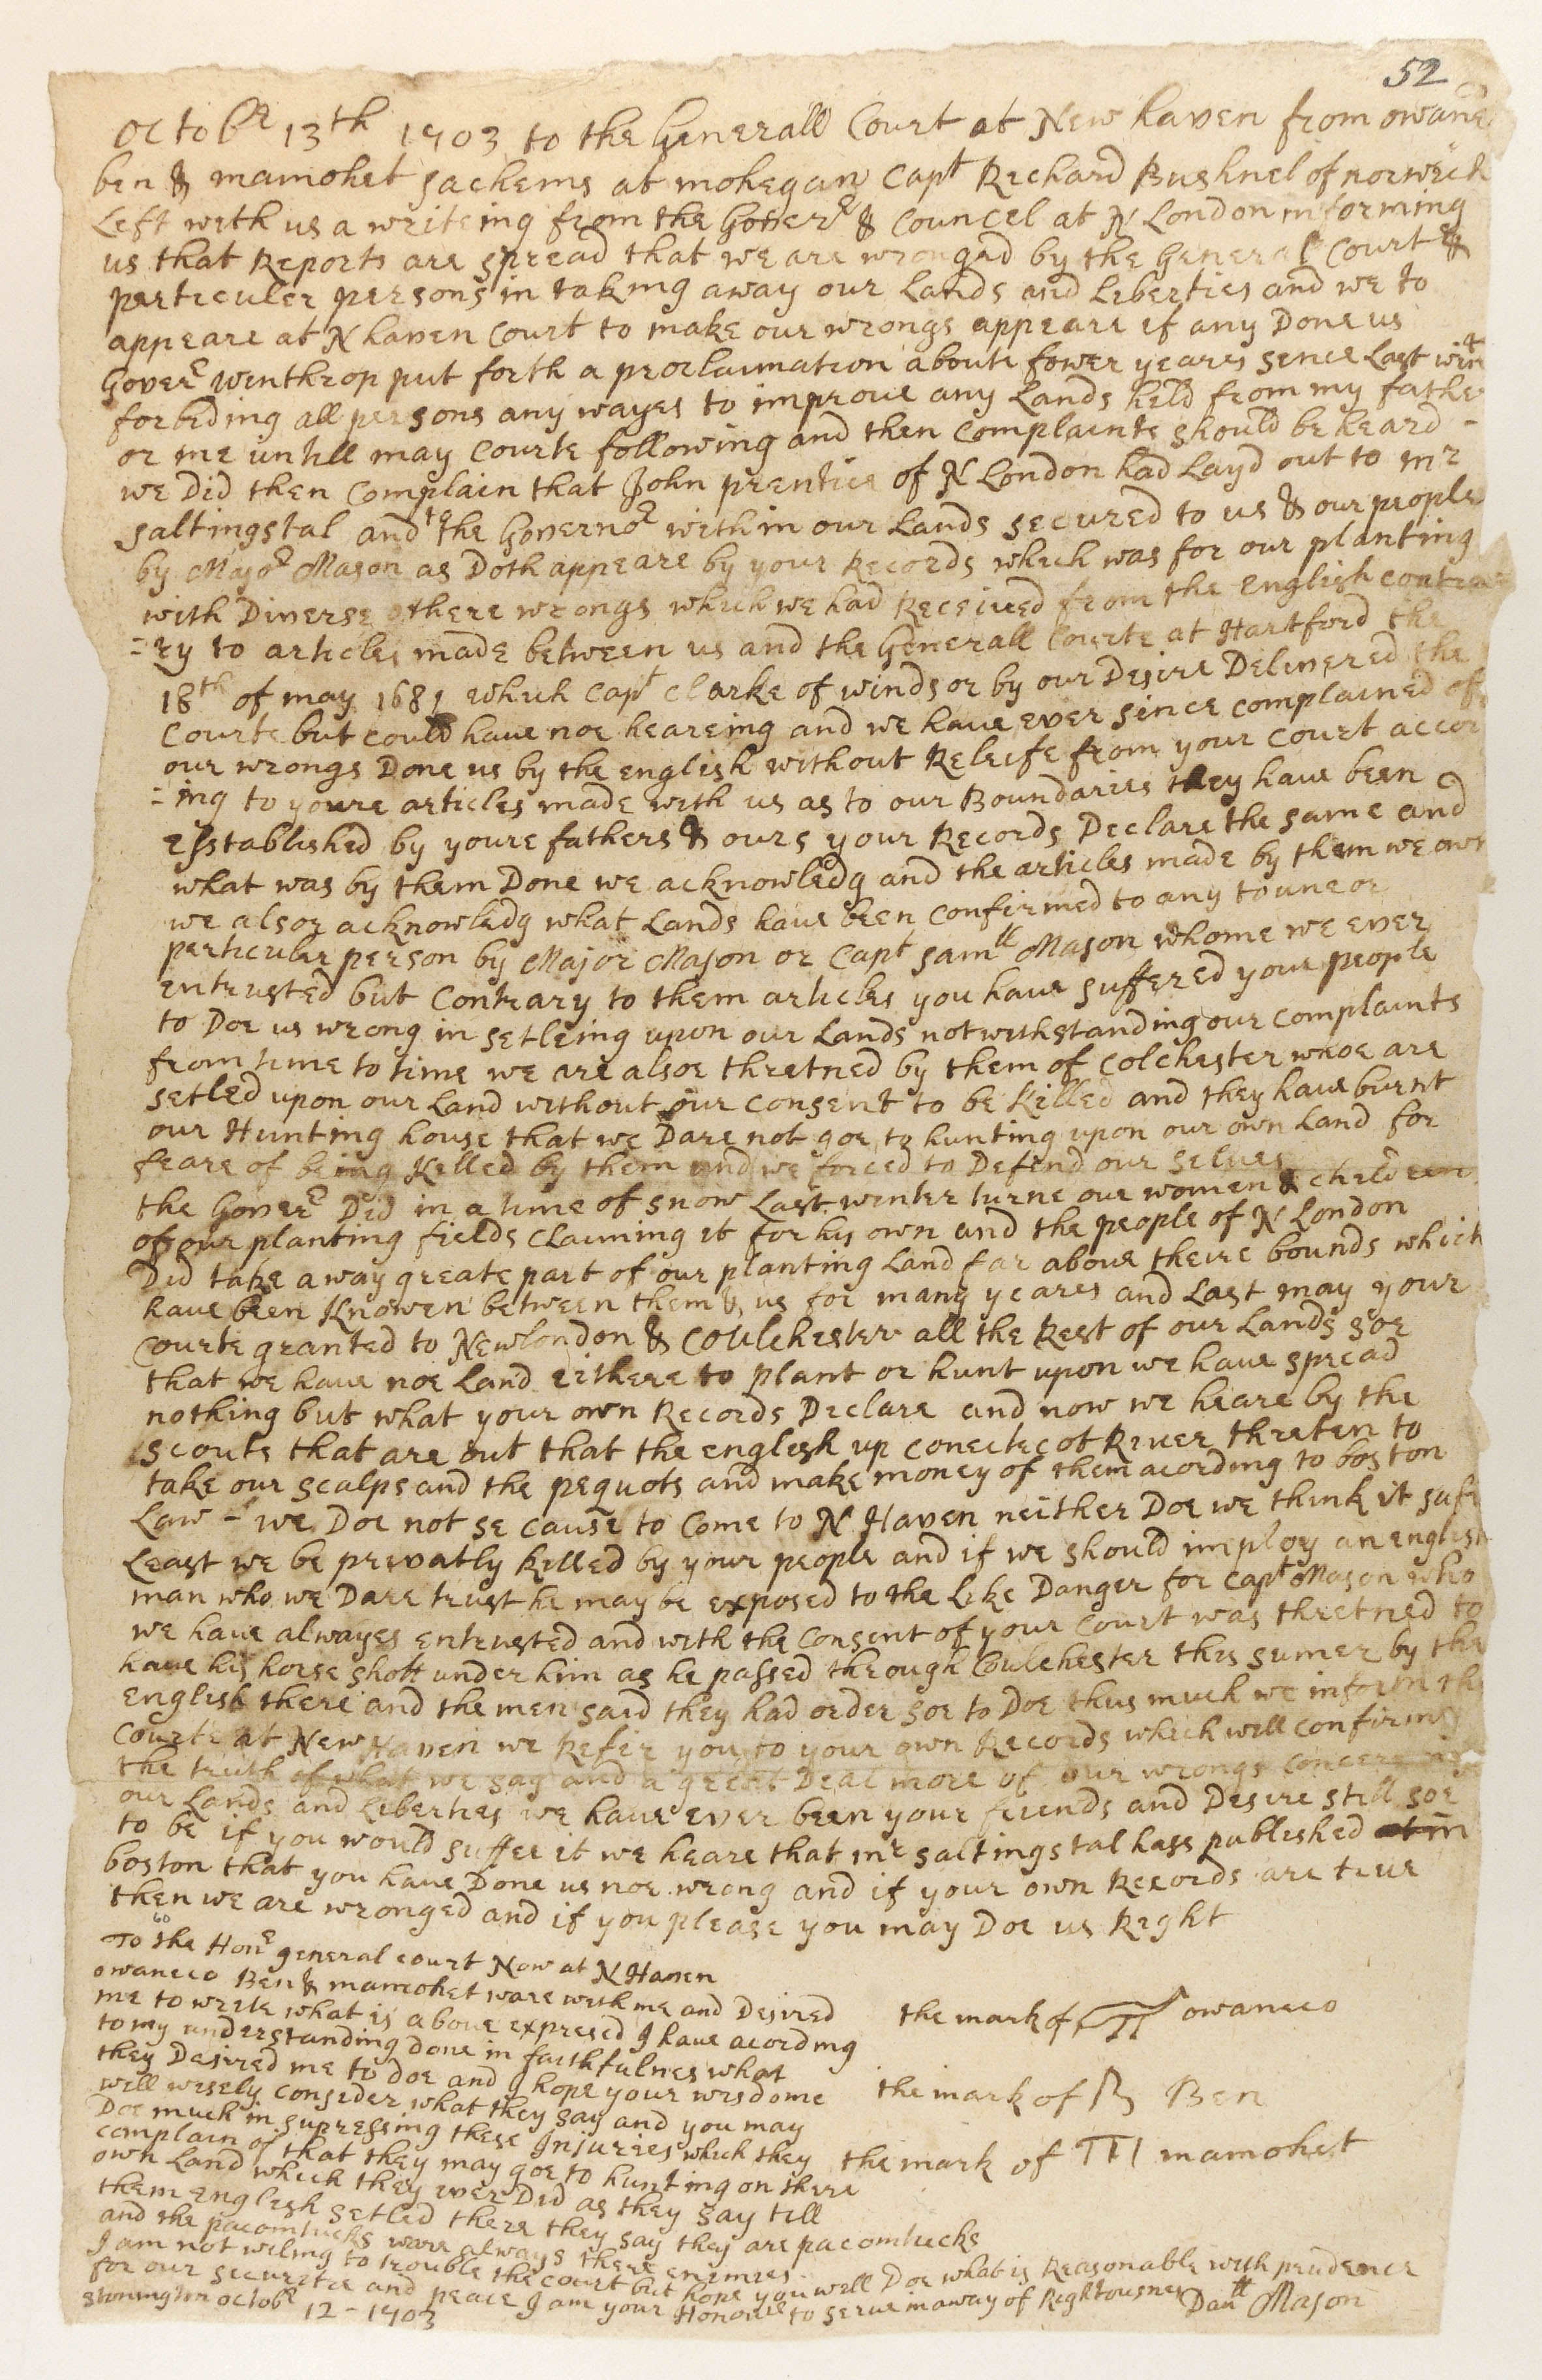 52
Octobr 13th 1703 to the Generall Court at New haven from owane
ben & mamohet sachems at mohegan Capt Richard Bushnel of norwich
Left with us a writeing from the Goverr & Councel at N London informing
us that Reports are spread that we are wronged by the General Court &
perticuler persons in taking away our Lands and Liberties and we to
appeare at N haven Court to make our wrongs appeare if any Done us
Goverr winthrop put forth a proclaimation aboute fower yeares sence Last wint
forbiding all persons any wayes to improve any Lands held from my father
or me untill may Courte following and then Complaints should be heard -
we Did then Complain that John prentice of N London had Layd out to mr
saltingstal and to the Governor within our Lands secured to us & our people
by Major Mason as Doth appeare by your Records which was for our planting
with Diverse othere wrongs which we had Received from the english contra
=ry to articles made between us and the Generall Courte at Hartford the
18th of may 1681 which Capt Clarke of windsor by our Desire Delivered the
Courte but could have noe heareing and we have ever since complained of
our wrongs Done us by the english without Releife from your Court accor
=ing to youre articles made with us as to our Boundaries they have been
established by youre fathers & ours your Records Declare the same and
what was by them Done we acknowledg and the articles made by them we own
we alsoe acknowledg what Lands have been Confirmed to any towne or
perticuler person by Major Mason or Capt samll Mason whome we ever
entrusted but Contrary to them articles you have suffered your people
to Doe us wrong in setleing upon our Lands notwithstanding our complaints
from time to time we are alsoe thretned by them of Colchester whoe are
setled upon our Land without our consent to be killed and they have burnt
our Hunting house that we Dare not goe to hunting upon our own Land for
feare of being Killed by them and we forced to Defend our selves
the Goverr Did in a time of snow Last winter turne our women & children
of our planting fields Claiming it for his own and the people of N London
Did take away greate part of our planting Land far above theire bounds which
have been Knowen between them & us for many yeares and Last may your
Courte granted to Newlondon & Coulchester all the Rest of our Lands soe
that we have noe Land eithere to plant or hunt upon we have spread
nothing but what your own Records Declare and now we heare by the
scouts that are out that the english up Conectecot River threten to
take our scalps and the pequots and make money of them acording to boston
Law - we Doe not se cause to Come to N Haven neither Doe we think it safe
Least we be privatly killed by your people and if we should imploy an english
man who we Dare trust he may be exposed to the Like Danger for Capt Mason who
we have alwayes entrusted and with the Consent of your Court was thretned to
have his horse shott under him as he passed through Coulchester this sumer by the
English there and the men said they had order soe to Doe thus much we inform the
Courte at New Haven we Refer you to your own Records which will confirme
the truth of what we say and a great Deal more of our wrongs concerning
our Lands and Liberties we have ever been your friends and Desire still soe
to be if you would suffer it we heare that mr saltingstal hass published
boston that you have Done us noe wrong and if your own Records are true
then we are wronged and if you please you may Doe us Right
To the Honr general court Now at N Haven
owaneco Ben & mamohet ware with me and Desired
me to write what is above expresed I have acording
to my understanding done in faithfulnes what
they Desired me to doe and I hope your wisdome
will wisely consider what they say and you may
Doe much in supressing these Injuries which they
complain of that they may goe to hunting on there
own Land which they ever Did as they say till
them english setled there they say they are pacomtucks
and the pacomtucks ware always there enimies
I am not wiling to trouble the court but hope you will Doe what is Reasonable with prudence
for our securitie and peace I am your Honours to serve in a way of Rightousnes
Stonington octobr 12 - 1703
Danll Mason
the mark of owaneco
the mark of Ben
the mark of mamohet